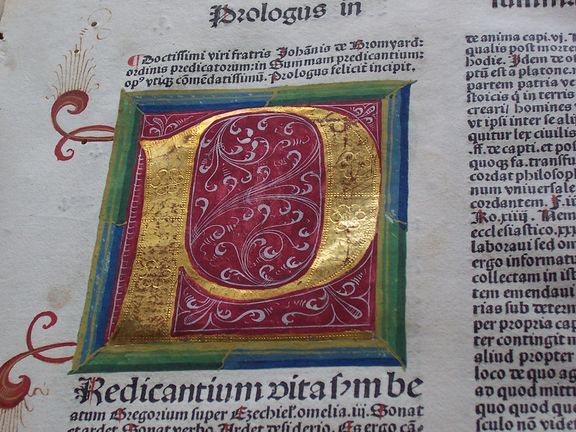 Prologus in
Doctissimi viri fratris Johãnis de Bromyard:
ordinis predicatorum: in Summam predicantiũ:
opꝰ vtiqꝫ cõmẽdatissimũ. Prologus feliciт incipit.
P
Redicantium vita sym be
atum Gregorium super Ezechiel. omelia. iij. Sonat
et ardet. Sonat verbo. Ardet desiderio. Es ergo cãn
de anima capi. vj.
qualis post morte
hodie. Idem de
ptũ est a platone.
partem patria ve
storicis ꝙ in terris
creari homines
vt ipsi inter se ali
quitur lex ciuilis
ff. de capti. et
quoqꝫ fa. transfu
cordat philosoph
num vniuersale
cordantem.
Ro. xiiij. Nem
ecclesiastico. xxx
laboraui sed om
ergo informatu
collectam in ist
tem emendaui
rias sub
per propria cap
ter contingit
aliud propter
loco de quo ag
ad quod mitti
quo quod quo
sculo nõ